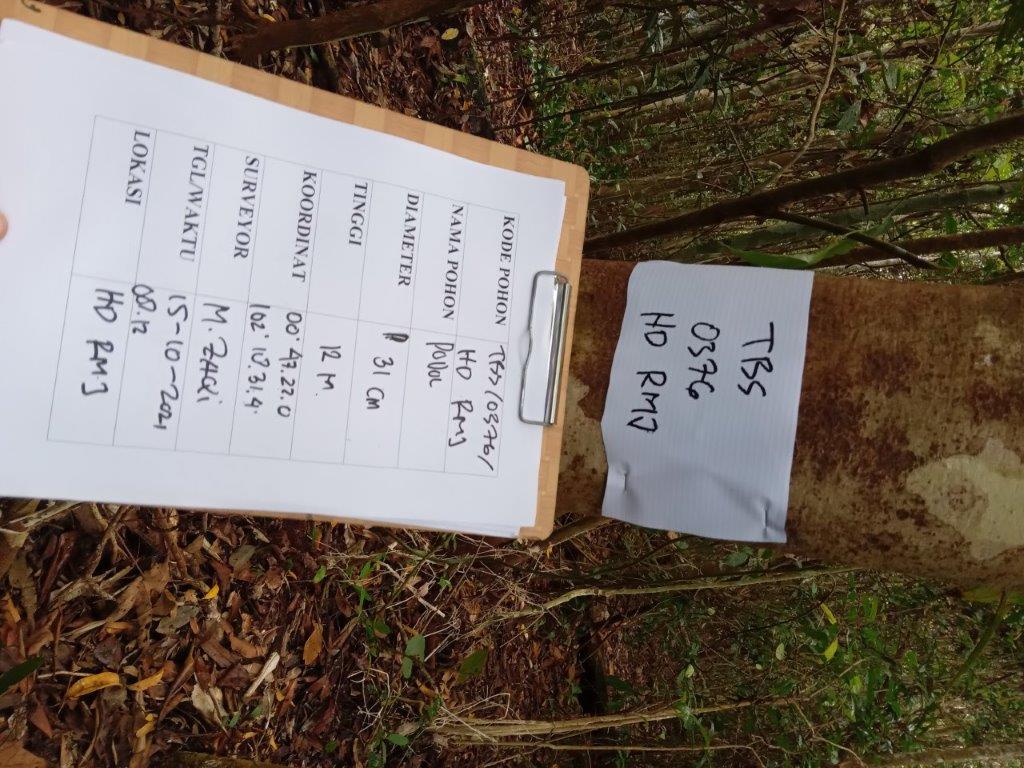 TBS
0376
HD RMJ
KODE POHON TBS/0376/
HD RMJ
NAMA POHON PODOL
DIAMETER 31 CM
TINGGI 12 M.
KOORDINAT 00° 47.22.0
102° 18.31.4
SURVEYOR M. ZAQi
TGL/WAKTU 15-10-2021
09.12
LOKASI HD RMJ